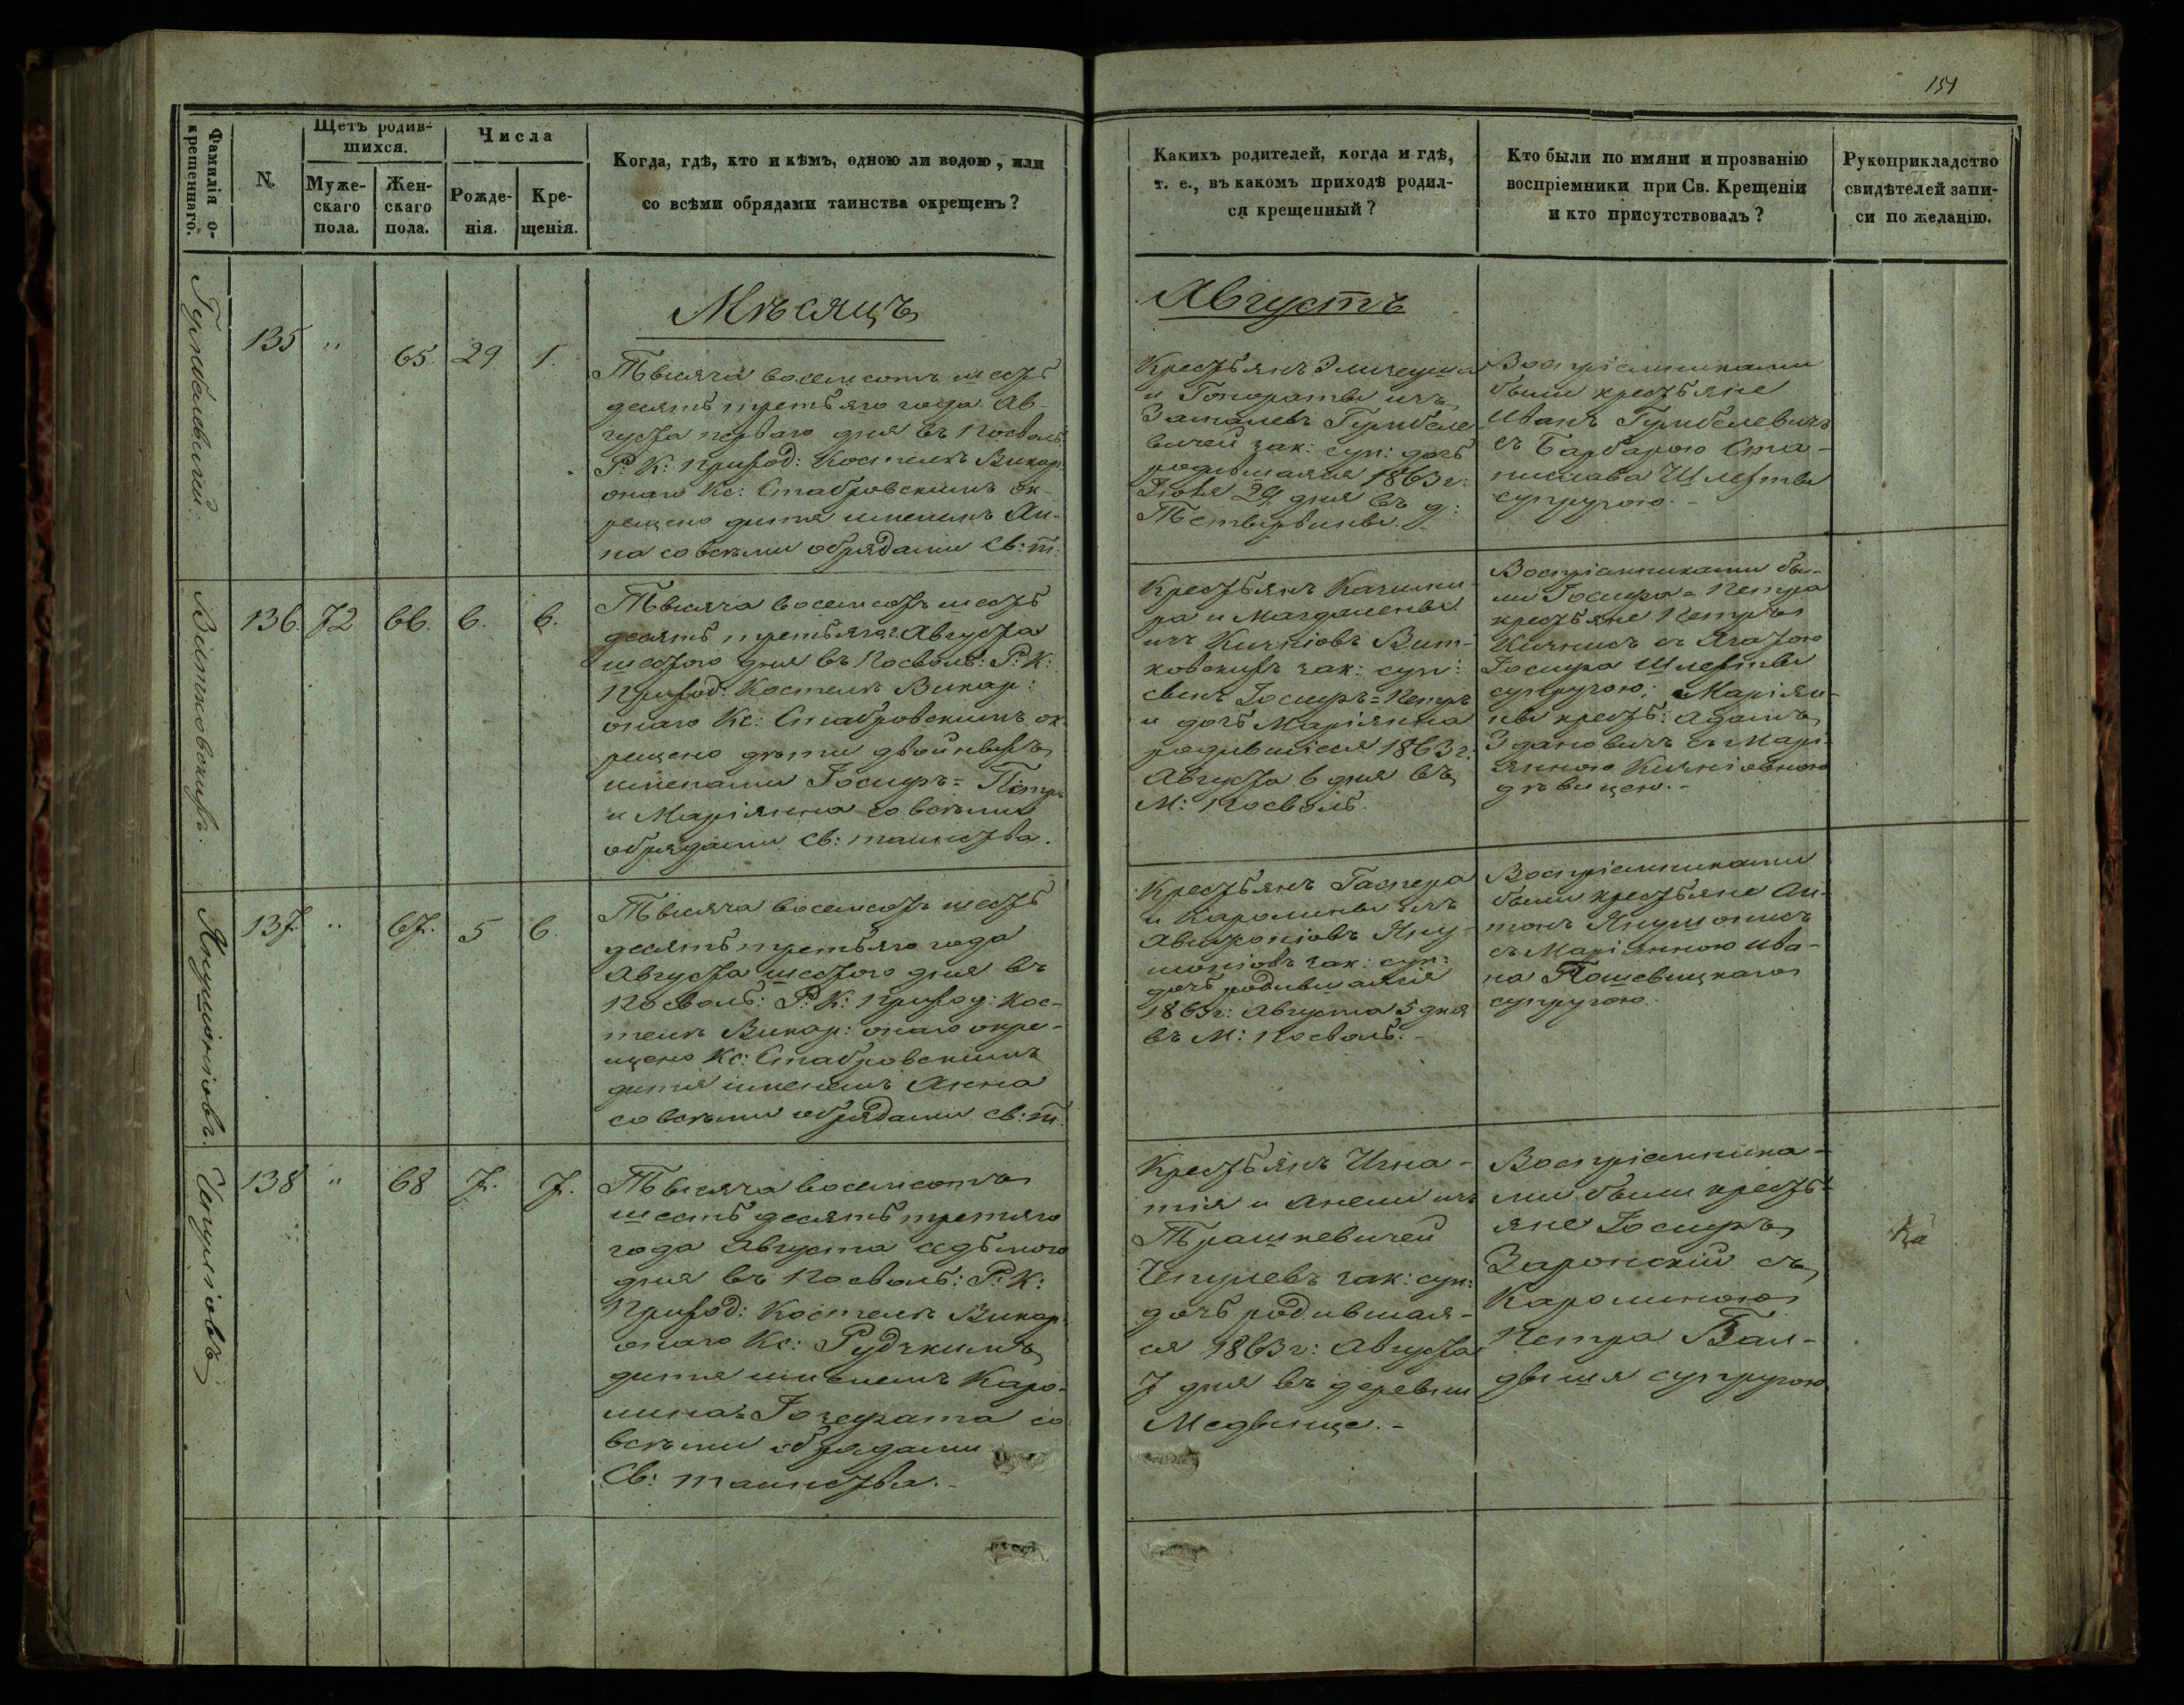 151
Фамилія о-
крещеннаго.
N.
Щетъ родив-
шихся.
Муже-
скаго
пола.
Жен-
скаго
пола.
Числа
Рожде-
нія.
Кре-
щенія.
Когда, гдѣ, кто и кѣмъ, одною ли водою, или
со всѣми обрядами таинства окрещенъ?
Какихъ родителей, когда и гдѣ,
т. е., въ какомъ приходѣ родил-
ся крещенный?
Кто были по имяни и прозванію
воспріемники при Св. Крещеніи
и кто присутствовалъ?
Рукоприкладство
свидѣтелей запи-
си по желанію.
Мѣсяцъ
Августъ
135 " 65. 29 1.
Тысяча восемсотъ шесть
десять третьяго года Ав-
густа перваго дня въ Посволь:
Р: К: Приход: Костелѣ Викар:
онаго Кс: Стабровскимъ ок-
рещено дитя именемъ Ан-
на со всѣми обрядами Св: т:
Крестьянъ
и Гонораты изъ
Гумбеле
вичей зак: суп: дочь
родившаяся 1863 г:
Іюля 29 дня въ д:
Воспріемниками
были крестьяне
Иванъ Гумбелевичъ
съ Барбарою Ста-
нислава Шлехты
супругою.-
Витковскихъ.
136. 72 66. 6. 6.
Тысяча восемсотъ шесть
десять третьяго Августа
шестого дня въ Посволь: Р: К:
Приход: Костелѣ Викар:
онаго Кс: Стабровскимъ ок-
рещено дѣти двойныхъ
именами Іосифъ=Петръ
и Маріянна со всѣми
обрядами Св: таинства.
Крестьянъ Казими-
ра и Магдалены
изъ Вит-
ковскихъ зак: суп:
сынъ Іосифъ=Петръ
и дочь Маріянна
родившіеся 1863 г.
Августа 6 дня въ
М: Посволь.
Воспріемниками бы-
ли Іосифа=Петра
крестьяне Петръ
съ Агатою
Іосифа Шлехты
супругою; Маріян-
ны крест: Адамъ
Здановичъ съ Марі-
янною
дѣвицею.-
Янушоніовъ.
137. " 67. 5 6.
Тысяча восемсотъ шесть
десять третьяго года
Августа шестого дня въ
Посволь: Р: К: Приход: Кос-
телѣ Викар: онаго окре-
щено Кс: Стабровскимъ
дитя именемъ Анна
со всѣми обрядами Св: т:
Крестьянъ Гаспера
и Каролины изъ
Яну-
шоніовъ зак: суп:
дочь родившаяся
1863 г: Августа 5 дня
въ М: Посволь.-
Воспріемниками
были крестьяне Ан-
тонъ Янушонисъ
съ Маріянною Ива-
на
супругою.
138 " 68 7. 7.
Тысяча восемсотъ
шесть десять третяго
года Августа седьмого
дня въ Посволь: Р: К:
Приход: Костелѣ Викар:
онаго Кс: Рудзкимъ
дитя именемъ Каро-
лина=Іозефата со
всѣми обрядами
Св: таинства.-
Крестьянъ Игна-
тія и Анели изъ
Трашкевичей
зак: суп:
дочь родившая-
ся 1863 г: Августа
7 дня въ деревни
Воспріемника-
ми были кресть-
яне Іосифъ
съ
Каролиною
Петра
супругою